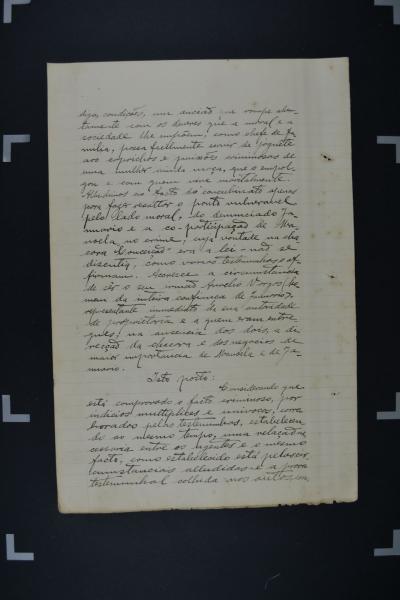 digo, condições, um ancião que rompe aber-
tamente com os deveres que a moral e a
sociedade lhe impõem, como chefe de fa-
milia, possa facilmente servir de joguete
aos caprichos e paixões criminosas de
uma mulher ainda moça, que o empol-
gou e com quem vive maritalmente.
Alludimos ao facto do concubinato apenas
para fazer resaltar o ponto vulneravel
pelo lado moral, do denunciado Ja-
nuario e a co-participação de Ma-
noela no crime, cuja vontade na cha-
cara "Conceição" era a lei - não se
discutia, como varias testemunhas o af-
firmam. Accresce a circumstancia
de ser o seu irmão Aurelio Vargas, ho-
mem da inteira confiança de Januario,
representante immediato de sua autoridade
de proprietario e a quem eram entre-
gues, na ausencia dos dois, a di-
recção da chacara e dos negocios de
maior importancia de Manoela e de Ja-
nuario.
Isto posto:
Considerando que
está comprovado o facto criminoso, por
indicios multiplices e univocos, corro-
borados pelas testemunhas, estabelecen-
do ao mesmo tempo, uma relação ne-
cessaria entre os agentes e o mesmo
facto, como estabelecido está pelas cir-
cumstancias alludidas e a prova
testemunhal colhida nos autos,